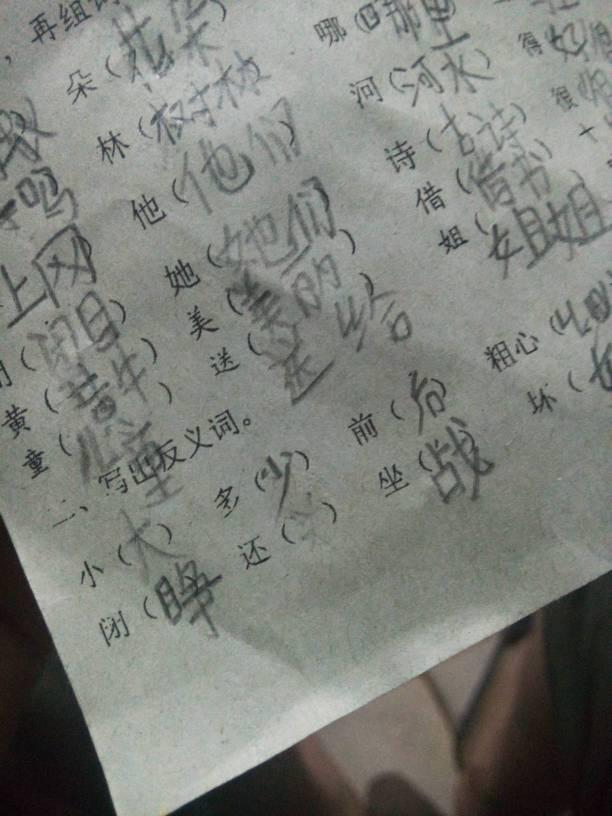 ，再组词
朵（花朵 哪（口那里
林（树林 河（河水）
他（他们） 诗（古诗
她（她们 借（借书
上网 姐（姐姐
美（美丽）
明目） 送（送给
黄（黄牛） 粗心（
童（儿童 坏（
二、写出反义词。
小（大） 多（少） 前（后）
闭（睁 还（ ） 坐（战